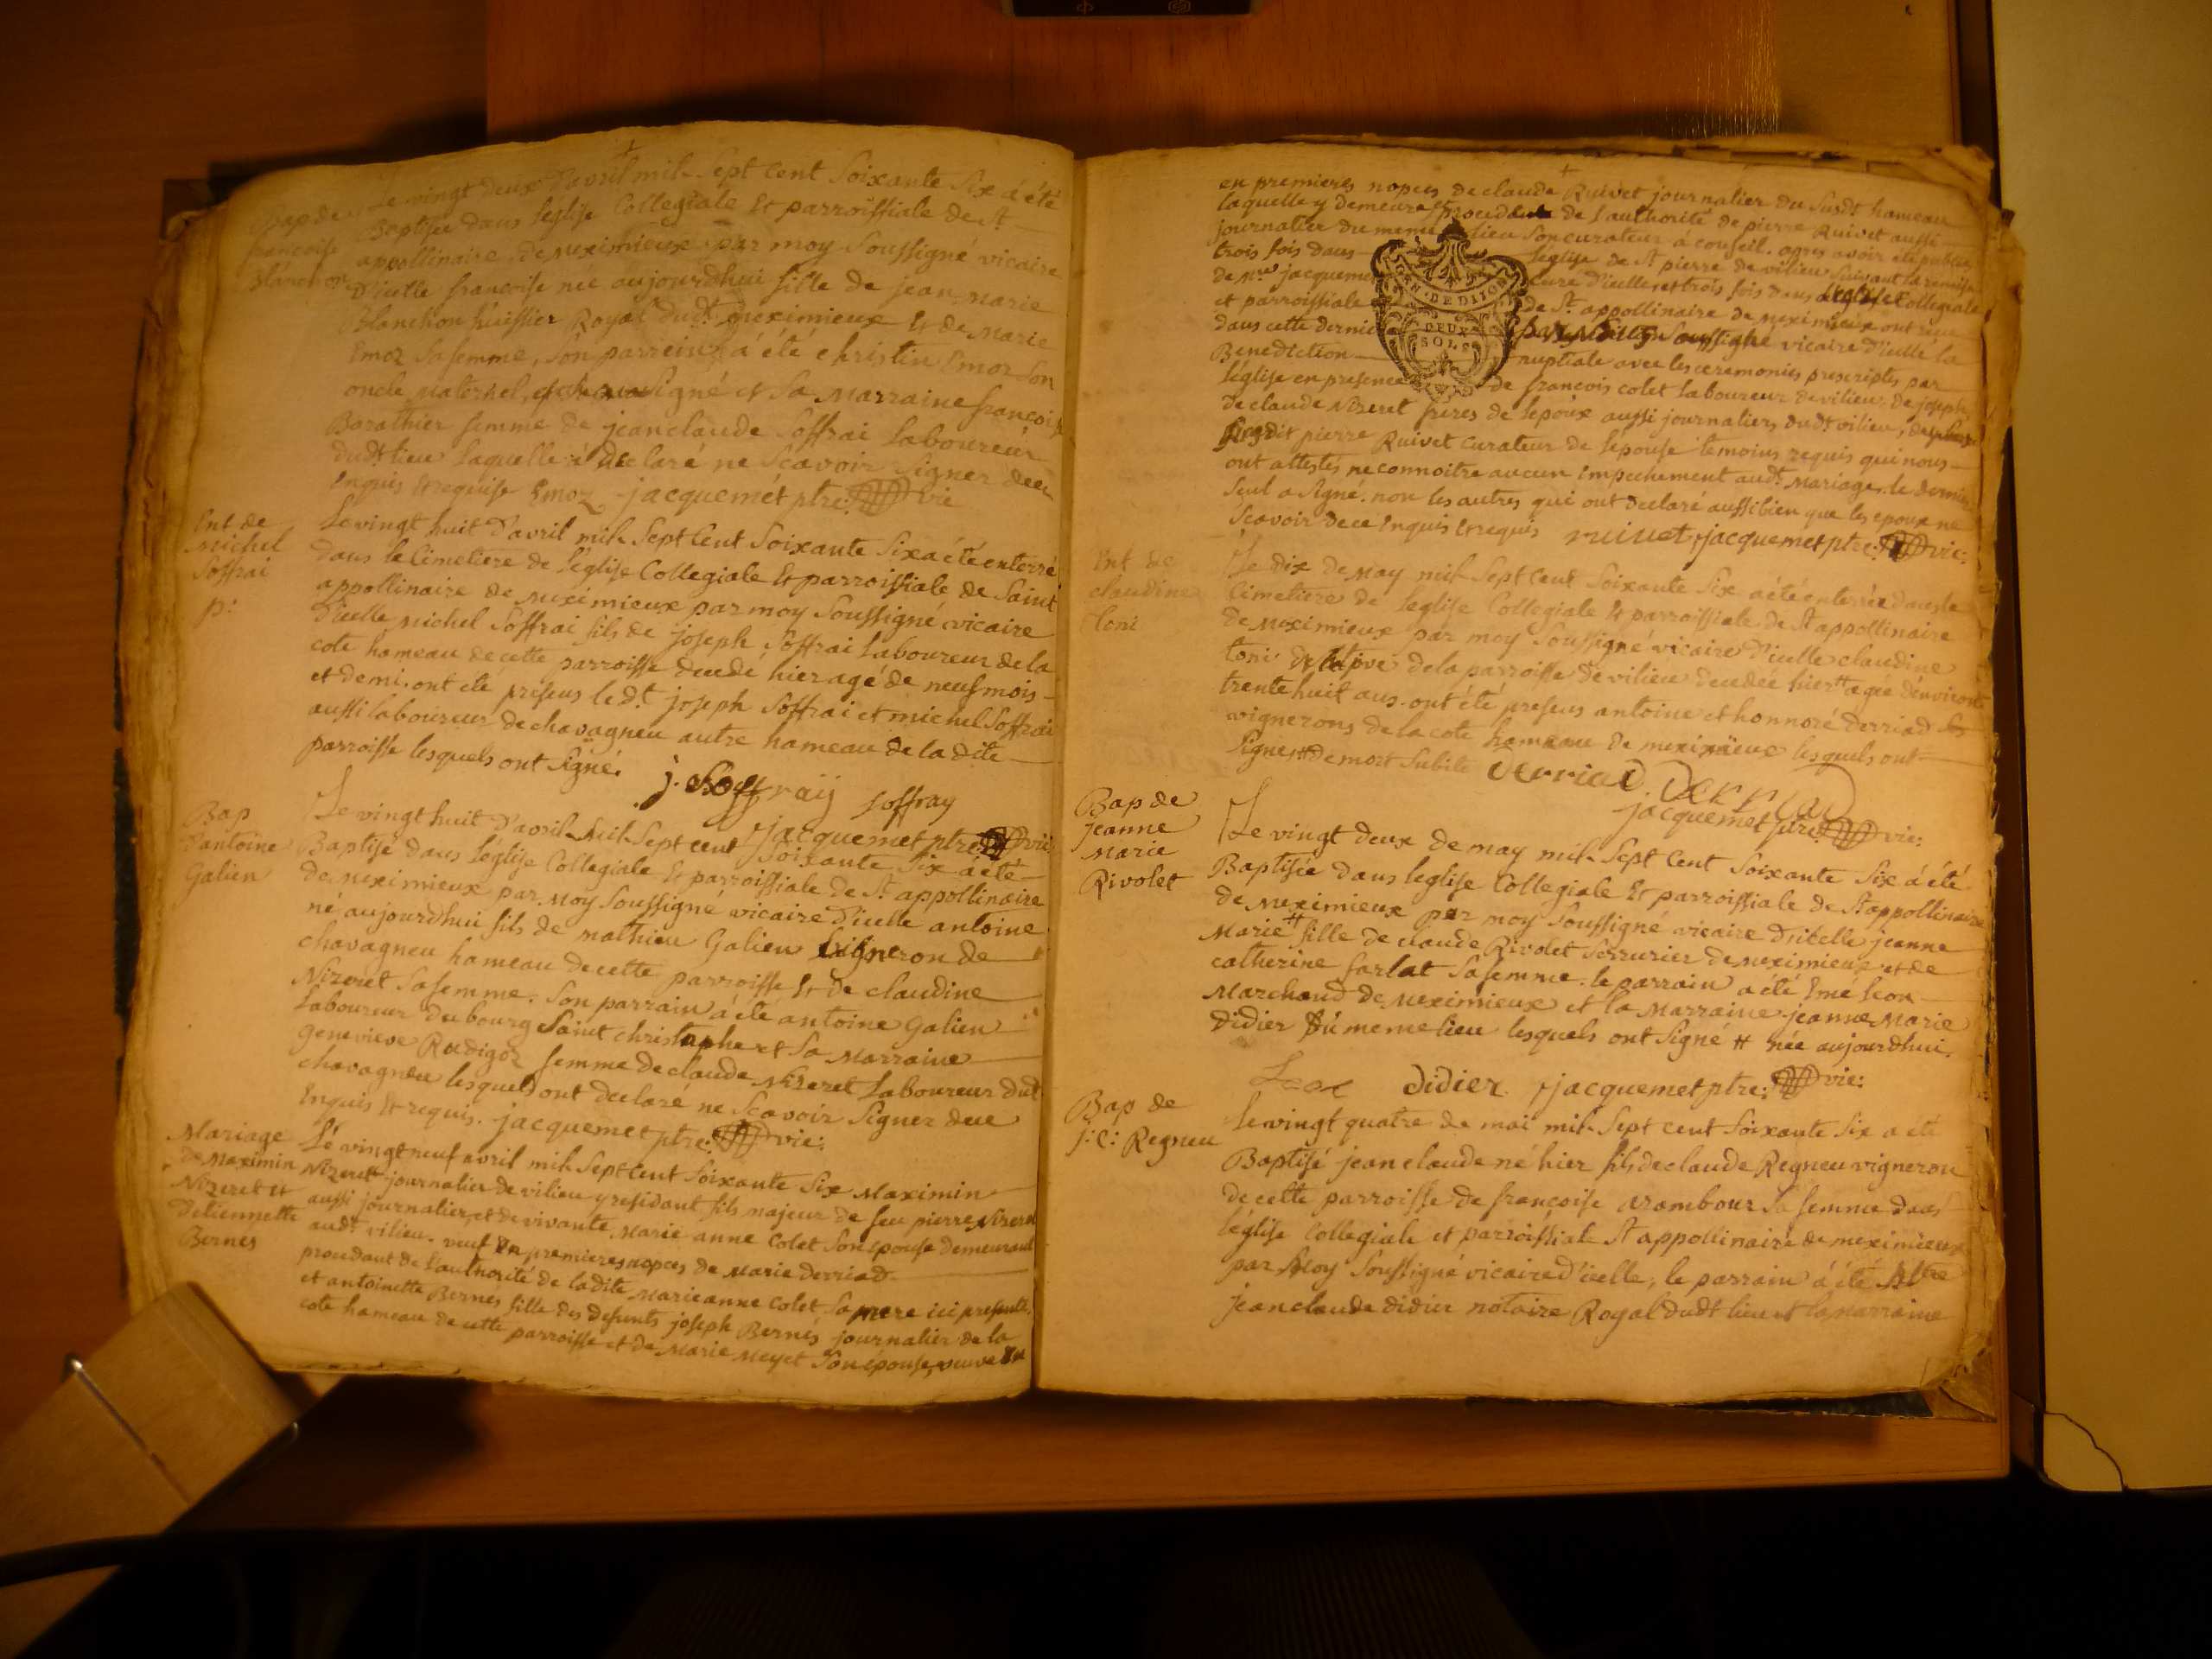 Bap de
francoise
Blanchon
Le vingt deux d'avril mil Sept Cent Soixante Six á été
Baptisée dans l'eglise Collegiale Et parroissiale de St
appollinaire de meximieux par moy Soussigné vicaire
D'icelle francoise née aujourdhui fille de jean marie
Blanchon huissier Royal dudt meximieux Et de Marie
Emoz Sa femme, Son parrein á été christin Emoz Son
oncle maternel, Signé et Sa Marraine francoise
Barathier femme de jean claude Soffrai Laboureur
dudt lieu Laquelle á déclaré ne Scavoir Signer de ce
Enquis Et requise Emoz jacquemet ptre: vic
Ent de
Michel
Soffrai
p:
Le vingt huit d'avril mil Sept Cent Soixante Six a été enterré
dans le Cimetiere de l'église Collegiale Et parroissiale de Saint
appollinaire de meximieux par moy Soussigné vicaire
D'icelle michel Soffrai fils de joseph Soffrai Laboureur de la
cote hameau de cette parroisse decedé hier agé de neuf mois
et demi. ont eté presens le dt. joseph Soffrai et michel Soffrai
aussi laboureur de chavagneu autre hameau de la dite
parroisse lesquels ont Signé.
j. Soffraij Soffray
jacquemet ptre vic:
Bap
d'antoine
Galien
Le vingt huit d'avril Mil Sept cent Soixante Six á été
Baptisé dans l'église Collegiale Et parroissiale de St. appollinaire
de meximieux par moy Soussigné vicaire D'icelle antoine
né aujourdhui fils de mathieu Galien vigneron de
chavagneu hameau de cette parroisse Et de claudine
Nizeret Sa femme. Son parrain á été antoine Galien
Laboureur du bourg Saint christophe et Sa Marraine
genevieve Rudigoz femme de claude Nizeret Laboureur dudt
chavagneu lesquels ont declaré ne Scavoir Signer de ce
Enquis Et requis. jacquemet ptre: vic:
Mariage
de Maximin
Nizeret et
Detiennette
Bernes
Le vingt neuf avril mil Sept cent Soixante Six Maximin
Nizeret journalier de vilieu y residant fils majeur de feu pierre Nizeret
aussi journalier, et de vivante Marie anne Colet Son épouse demeurant
audt vilieu. veuf En premieres nopces de Marie derriad
procedant de l'authorité de ladite Marie anne Colet Sa mere ici presente.
et antoinette Bernes fille des defunts joseph Bernes journalier de la
cote hameau de cette parroisse et de Marie Meyet Son épouse, veuve En
en premieres nopces de claude Ruivet journalier du Susdt. hameau
laquelle y demeure et procedante de l'authorité de pierre Ruivet aussi
journalier du meme lieu Son curateur á conseil. apres avoir été publiés
trois fois dans l'église de St pierre de vilieu Suivant la remise
de mre jacquemet Cure D'icelle, et trois fois dans l'eglise Collegiale
et parroissiale de St. appollinaire de meximieux ont
dans cette derniere par Nous Soussigné vicaire D'icelle la
Benediction nuptiale avec les ceremonies prescriptes par
l'église en presence de francois colet Laboureur de vilieu, de joseph
de claude Nizeret freres de l'epoux aussi journaliers dudt vilieu,
Susdit pierre Ruivet Curateur de l'epouse temoins requis qui nous
ont attestés ne connoitre aucun Empechement audt. Mariage. le dernier
Seul a Signé. non les autres qui ont declaré aussi bien que les epoux ne
Scavoir de ce Enquis Et requis ruivet jacquemet ptre: vic:
GEN. DE DIJON
DEUX
SOLS
Ent de
claudine
Toni
Le Dix de May mil Sept Cent Soixante Six a été enterrée dans le
Cimetiere de l'eglise Collegiale Et parroissiale de St appollinaire
de meximieux par moy Soussigné vicaire D'icelle claudine
toni de la parroisse de vilieu decedée hier # agée d'environ
trente huit ans. ont été presens antoine et honnoré derriad
vignerons de la cote hameau de meximieux lesquels ont
Signé # de mort Subite derriad. Derriad
jacquemet ptre: vic:
Bap de
jeanne
Marie
Rivolet
Le vingt deux de may mil Sept Cent Soixante Six á été
Baptisée dans l'eglise Collegiale Et parroissiale de St appollinaire
de meximieux par moy Soussigné vicaire D'icelle jeanne
Marie # fille de claude Rivolet Serrurier de meximieux et de
catherine farlat Sa femme. le parrain a été Emé Leon
Marchand de meximieux et la Marraine jeanne Marie
Didier du meme lieu lesquels ont Signé # née aujourdhui.
Didier jacquemet ptre: vic:
Bap de
j: C: Regneu
Le vingt quatre de mai mil Sept cent Soixante Six a été
Baptisé jean claude né hier fils de claude Regneu vigneron
de cette parroisse de francoise arambour Sa femme dans
l'église Collegiale et parroissiale St appollinaire de meximieux
par Moy Soussigné vicaire D'icelle, le parrain á été Mtre
jean claude didier notaire Royal dudt lieu et la marraine